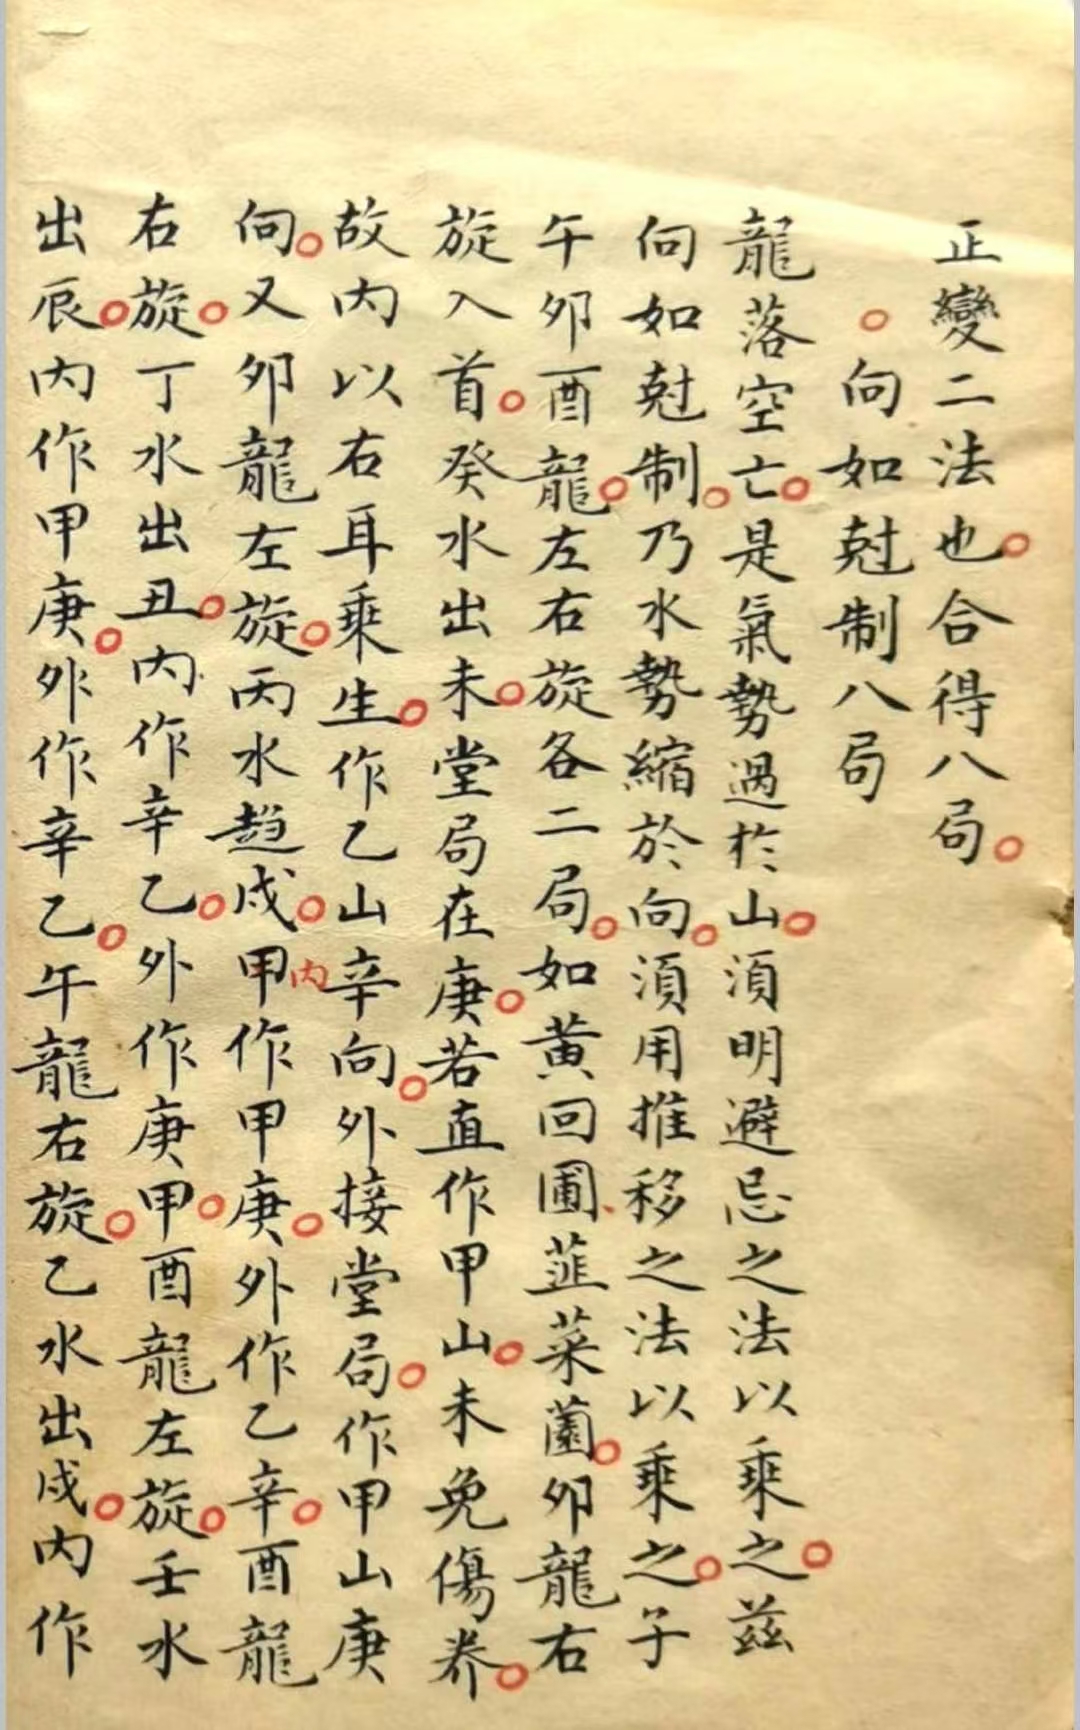 正變二法也。合得八局。
○向如尅制八局
龍落空亡。是氣勢過於山。須明避忌之法以乘之。茲
向如尅制。乃水勢縮於向。須用推移之法以乘之。子
午卯酉龍。左右旋各二局。如黄回圃、韮菜薗。卯龍右
旋入首。癸水出未。堂局在庚。若直作甲山。未免傷券。
故内以右耳乘生。作乙山辛向。外接堂局。作甲山庚
向。又卯龍左旋。丙水趋戌。甲内作甲庚。外作乙辛。酉龍
右旋。丁水出丑。内作辛乙。外作庚甲。酉龍左旋。壬水
出辰。内作甲庚。外作辛乙。午龍右旋。乙水出戌。内作